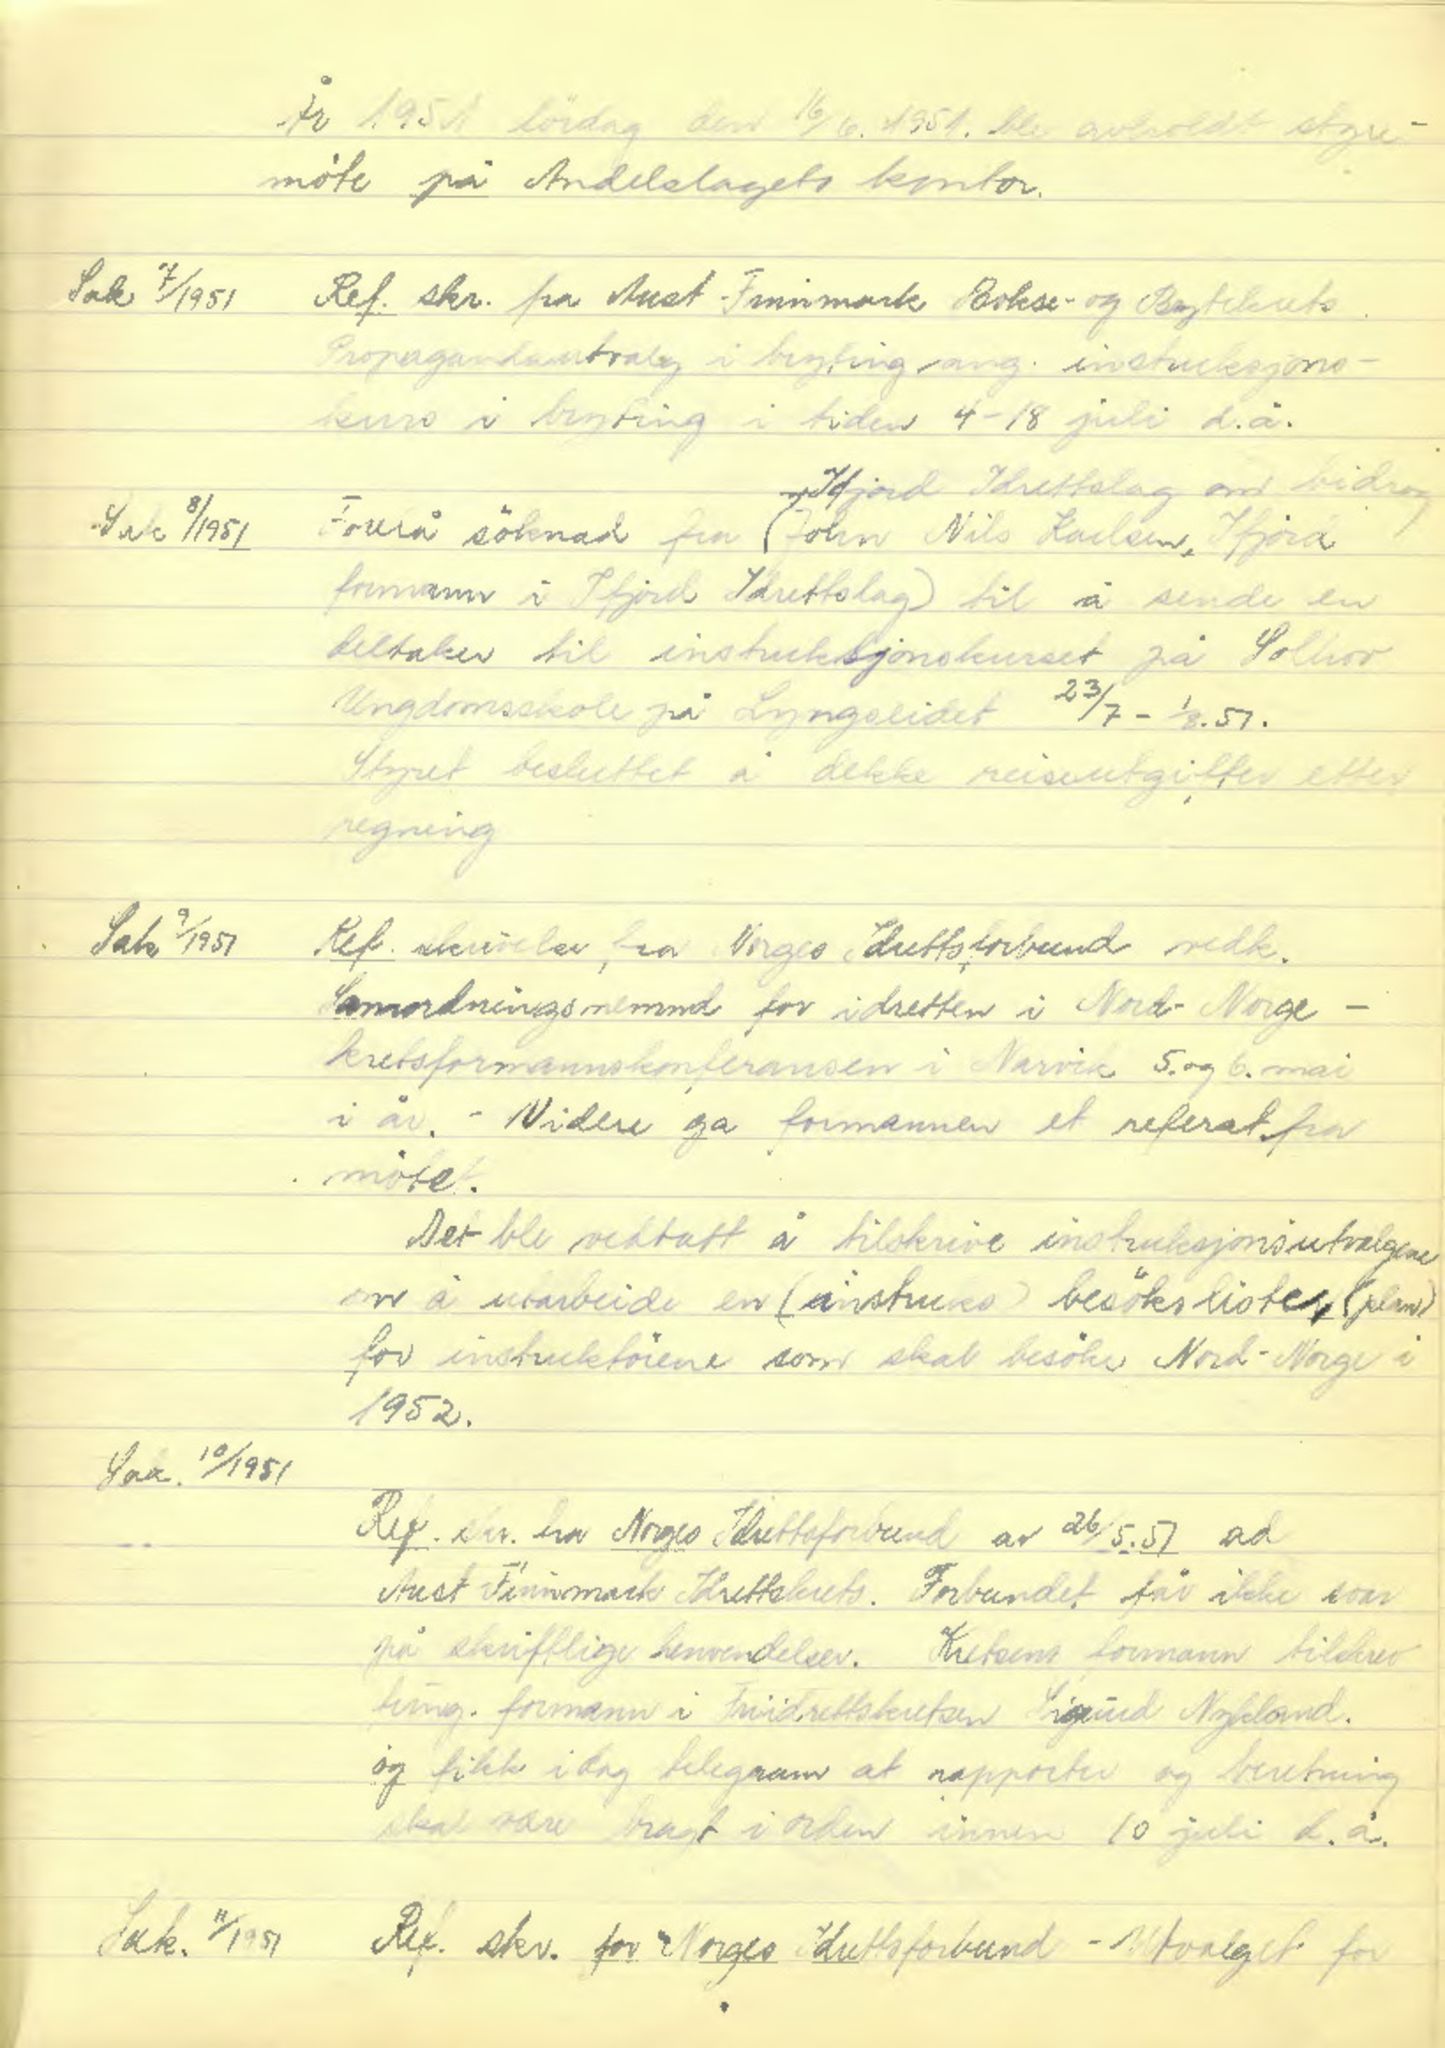 År 1951 lördag den 16/6. 1951. ble avholdt styre-
möte på Andelslagets kontor.
Sak 7/1951 Ref. skr. fra Aust-Finnmark Bokse- og Brytekrets
Propagandautvalg i bryting, ang. instruksjons-
kurs i bryting i tiden 4-18 juli d.å.
Ifjord Idrettslag om bidrag
Sak 8/1951 Forelå söknad fra (John Nils Karlsen, Ifjord
formann i Ifjord Idrettslag) til å sende en
deltaker til instruksjonskurset på Solhov
Ungdomsskole på Lyngseidet 23/7 - 1/8. 51.
Styret besluttet å dekke reiseutgifter etter
regning
Sak 9/1951 Ref. skrivelse fra Norges Idrettsforbund vedk.
Samordningsnemnd for idretten i Nord-Norge -
kretsformannskonferansen i Narvik 5. og 6. mai
i år. - Videre ga formannen et referat fra
mötet.
Det ble vedtatt å tilskrive instruksjonsutvalgene
om å utarbeide en (instruks) besöksliste, (plan)
for instruktörene som skal besöke Nord-Norge i
1952.
Sak. 10/1951
Ref. skr. fra Norges Idrettsforbund av 26/5. 51 ad
Aust Finnmark Idrettskrets. Forbundet får ikke svar
på skriftlige henvendelser. Kretsens formann tilskrev
fung. formann i Friidrettskretsen Sigurd Nykland.
og fikk idag telegram at rapporter og beretning
skal være bragt i orden innen 10 juli d.å.
Sak. 11/1951 Ref. skr. for Norges Idrettsforbund - Utvalget for